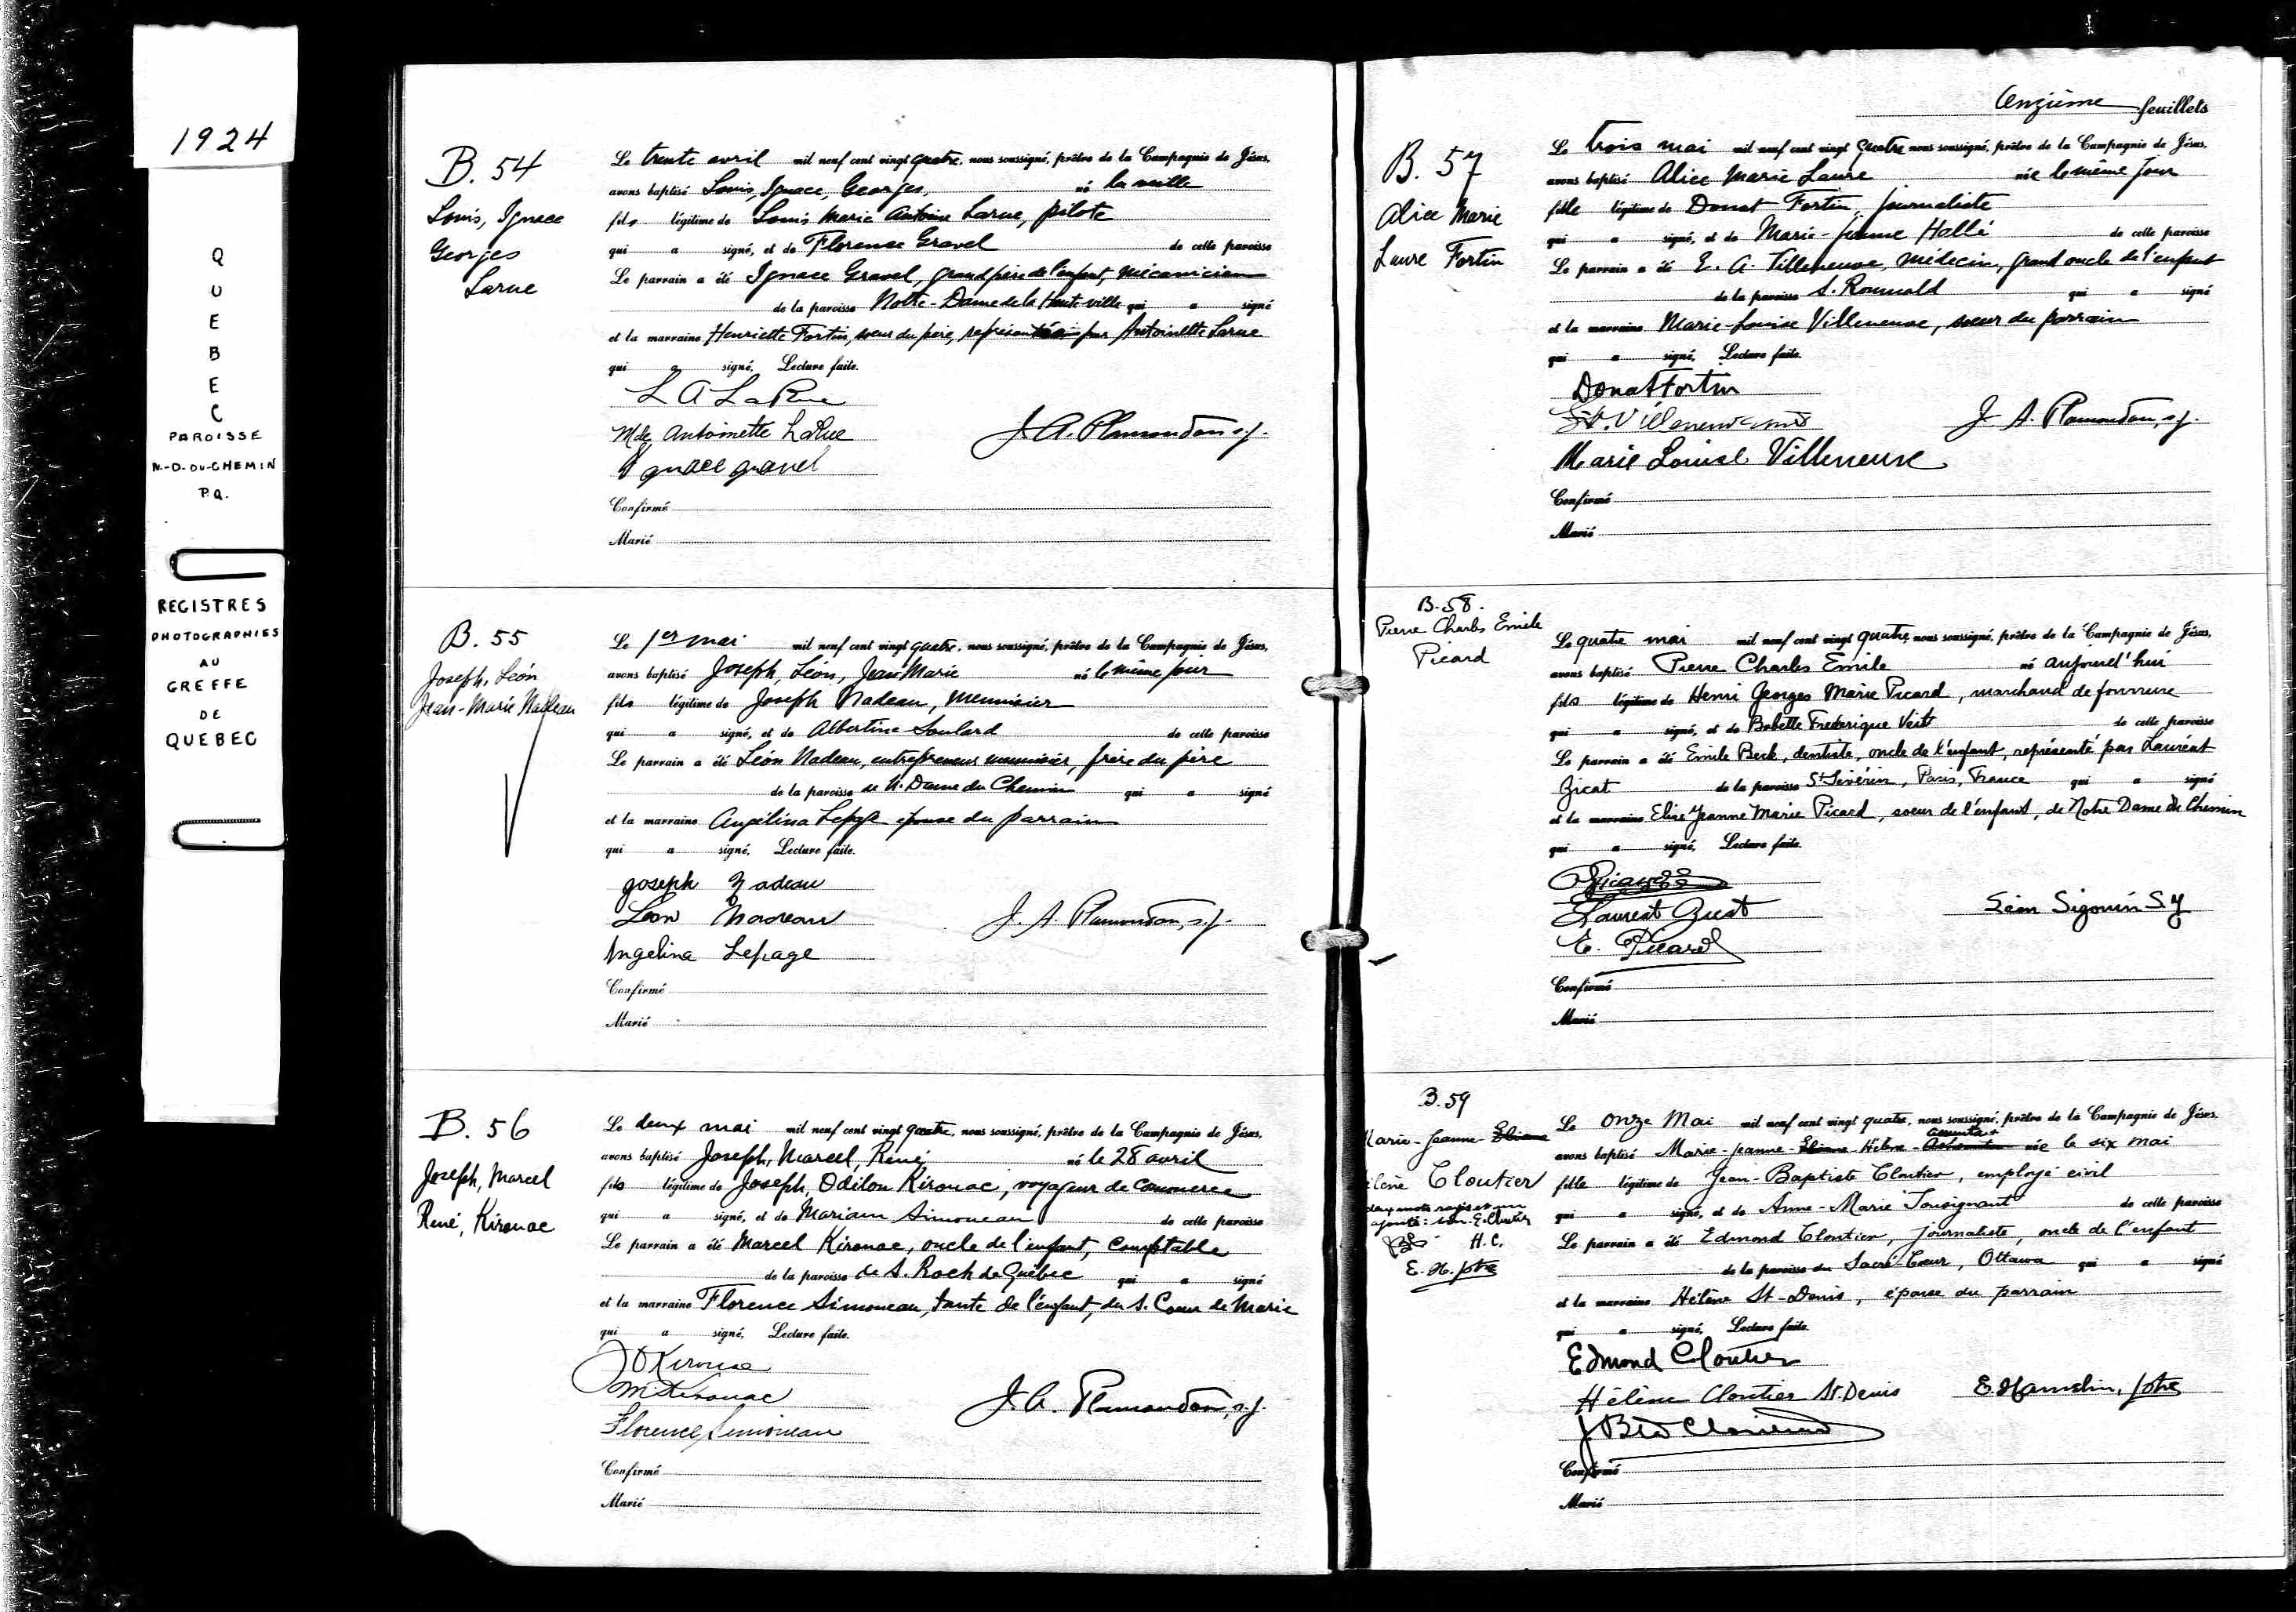 1924
QUEBEC
PAROISSE
N.-D.-DU-CHEMIN
P.Q.
REGISTRES
PHOTOGRAPHIES
AU
GREFFE
DE
QUEBEC
B. 54
Louis, Ignace
Georges
Larue
Le trente avril mil neuf cent vingt quatre, nous soussigné, prêtre de la Compagnie de Jésus,
avons baptisé Louis, Ignace, Georges, né la veille
fils légitime de Louis Marie Antoine Larue, pilote
qui a signé, et de Florence Gravel de cette paroisse
Le parrain a été Ignace Gravel, grand père de l'enfant, mécanicien
de la paroisse Notre-Dame de la Haute-ville qui a signé
et la marraine Henriette Fortin, soeur du père, représentée par Antoinette Larue
qui a signé, Lecture faite.
L A LaRue
Mde Antoinette LaRue
J. A. Plamondon, s.j.
Ignace gravel
Confirmé
Marié
B. 55
Joseph, Léon
Jean-Marie Nadeau
Le 1er mai mil neuf cent vingt quatre, nous soussigné, prêtre de la Compagnie de Jésus,
avons baptisé Joseph, Léon, Jean Marie né le même jour
fils légitime de Joseph Nadeau, menuisier
qui a signé, et de Albertine Soulard de cette paroisse
Le parrain a été Léon Nadeau, entrepreneur menuisier, frère du père
de la paroisse de N. Dame du Chemin qui a signé
et la marraine Angélina Lepage épouse du parrain
qui a signé, Lecture faite.
Joseph Nadeau
Léon Nadeau
J. A. Plamondon, s.j.
Angelina Lepage
Confirmé
Marié
B. 56
Joseph, Marcel
René, Kirouac
Le deux mai mil neuf cent vingt quatre, nous soussigné, prêtre de la Compagnie de Jésus,
avons baptisé Joseph, Marcel, René né le 28 avril
fils légitime de Joseph, Odilon Kirouac, voyageur de commerce
qui a signé, et de Mariam Simoneau de cette paroisse
Le parrain a été Marcel Kirouac, oncle de l'enfant, comptable
de la paroisse de S. Roch de Québec qui a signé
et la marraine Florence Simoneau, tante de l'enfant, du S. Coeur de Marie
qui a signé, Lecture faite.
J O Kirouac
M Kirouac
J. A. Plamondon, s.j.
Florence Simoneau
Confirmé
Marié
Onzième feuillets
B. 57
Alice Marie
Laure Fortin
Le trois mai mil neuf cent vingt quatre nous soussigné, prêtre de la Compagnie de Jésus,
avons baptisé Alice Marie Laure née le même jour
fille légitime de Donat Fortin, journaliste
qui a signé, et de Marie-Jeanne Hallé de cette paroisse
Le parrain a été E. A. Villeneuve, médecin, grand oncle de l'enfant
de la paroisse S. Romuald qui a signé
et la marraine Marie-Louise Villeneuve, soeur du parrain
qui a signé, Lecture faite.
Donat Fortin
Villeneuve md
J. A. Plamondon, s.j.
Marie Louise Villeneuve
Confirmé
Marié
B. 58.
Pierre Charles Emile
Picard
Le quatre mai mil neuf cent vingt quatre nous soussigné, prêtre de la Compagnie de Jésus,
avons baptisé Pierre Charles Emile né aujourd'hui
fils légitime de Henri Georges Marie Picard, marchand de fourrure
qui a signé, et de Babette Frederique Veit de cette paroisse
Le parrain a été Emile Beck, dentiste, oncle de l'enfant, représenté par Lauréat
Gicat de la paroisse St Séverin, Paris, France qui a signé
et la marraine Elise Jeanne Marie Picard, soeur de l'enfant, de Notre Dame du Chemin
qui a signé, Lecture faite.
Picard
Laureat
Léon Sigouin S J
E. Picard
Confirmé
Marié
B. 59
Marie-Jeanne-Eliane
Hélène Cloutier
deux mots rayés et un
ajouté: bon. E. Cloutier
H. C.
E. H. ptre
Le onze Mai mil neuf cent vingt quatre, nous soussigné, prêtre de la Compagnie de Jésus,
avons baptisé Marie-Jeanne-Eliane-Hélène-Assunta née le six mai
fille légitime de Jean-Baptiste Cloutier, employé civil
qui a signé, et de Anne-Marie Tousignant de cette paroisse
Le parrain a été Edmond Cloutier, journaliste, oncle de l'enfant
de la paroisse du Sacré-Coeur, Ottawa qui a signé
et la marraine Hélène St-Denis, épouse du parrain
qui a signé, Lecture faite.
Edmond Cloutier
Hélène Cloutier St. Denis
E. Hamelin, ptre
J Bte Cloutier
Confirmé
Marié